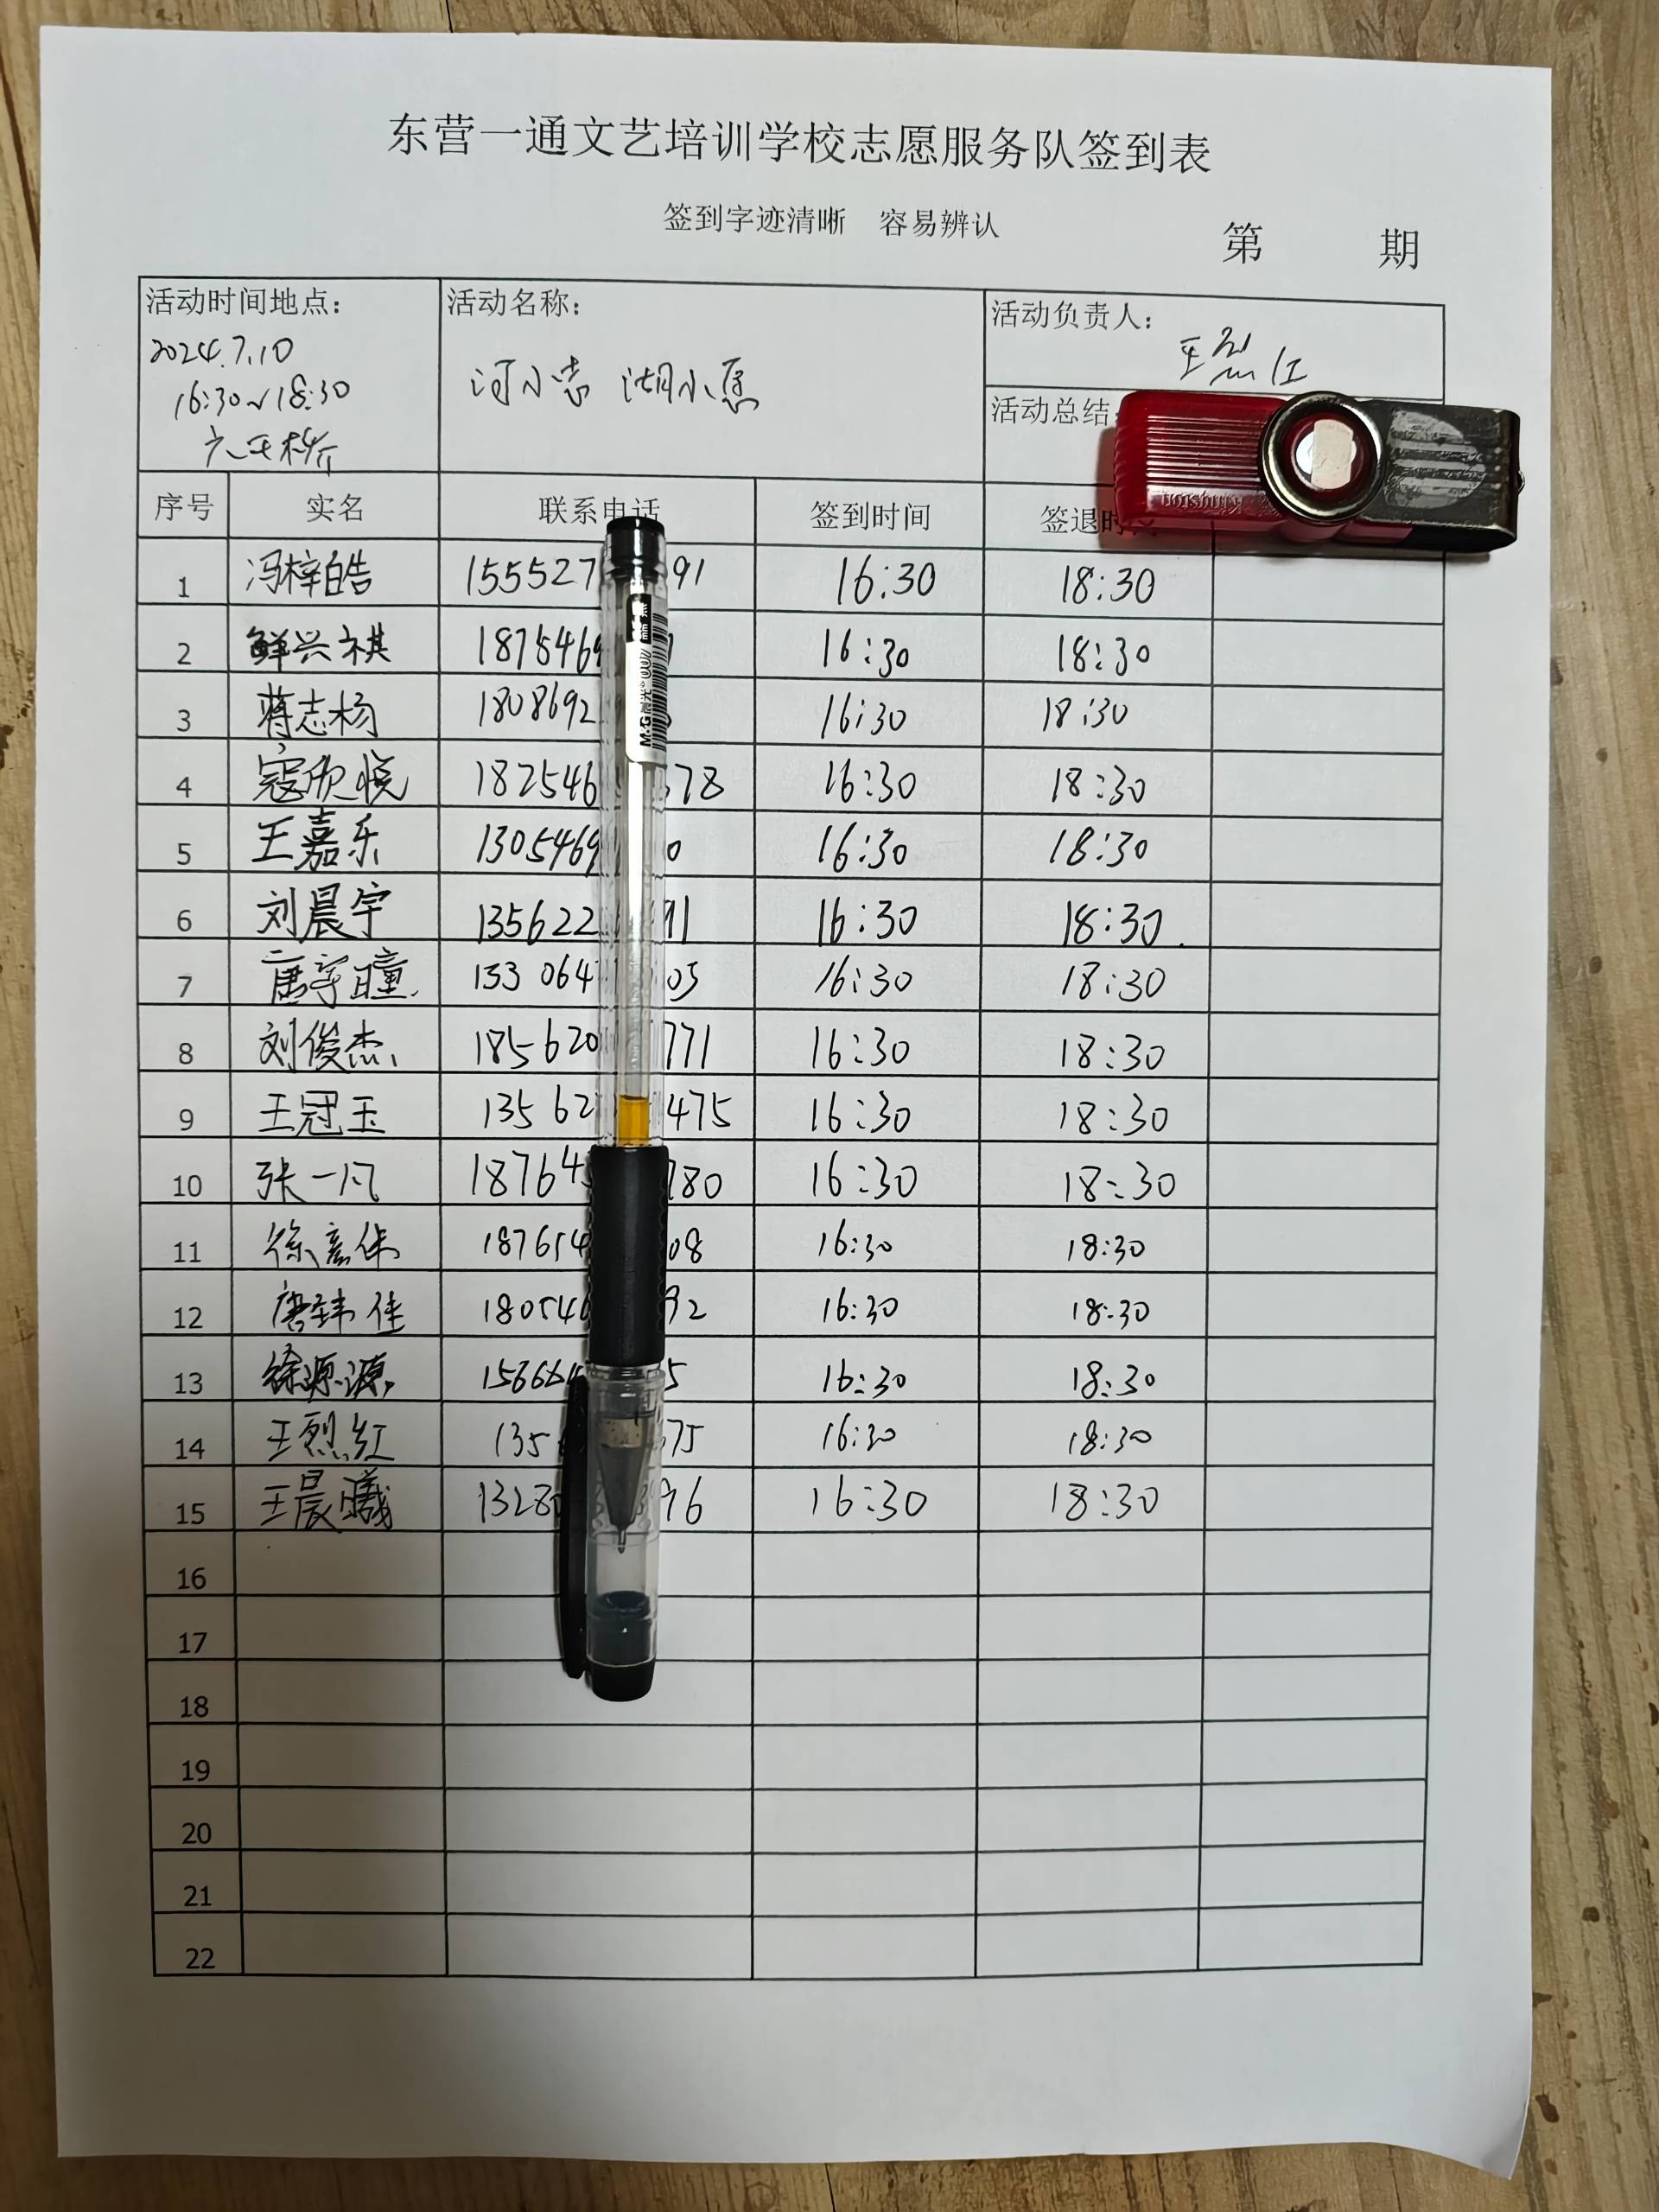 东营一通文艺培训学校志愿服务队签到表
签到字迹清晰 容易辨认
第 期
活动时间地点: 活动名称: 活动负责人:
2024.7.10 王烈红
16:30~18:30 河小志 湖小愿
活动总结:
序号 实名 联系电话 签到时间 签退时
1 冯梓皓 155527 91 16:30 18:30
2 鲜兴祺 187546 16:30 18:30
3 蒋志杨 1808692 16:30 18:30
4 寇欣悦 182546 78 16:30 18:30
5 王嘉乐 1305469 0 16:30 18:30
6 刘晨宇 135622 91 16:30 18:30
7 唐宇瞳 133 064 05 16:30 18:30
8 刘俊杰 185620 771 16:30 18:30
9 王冠玉 135 62 475 16:30 18:30
10 张一凡 18764 780 16:30 18:30
11 徐彦伟 187654 08 16:30 18:30
12 唐玮佳 180546 92 16:30 18:30
13 徐源源 15666 5 16:30 18:30
14 王烈红 135 75 16:30 18:30
15 王晨曦 1328 96 16:30 18:30
16
17
18
19
20
21
22
M&G
Kingston